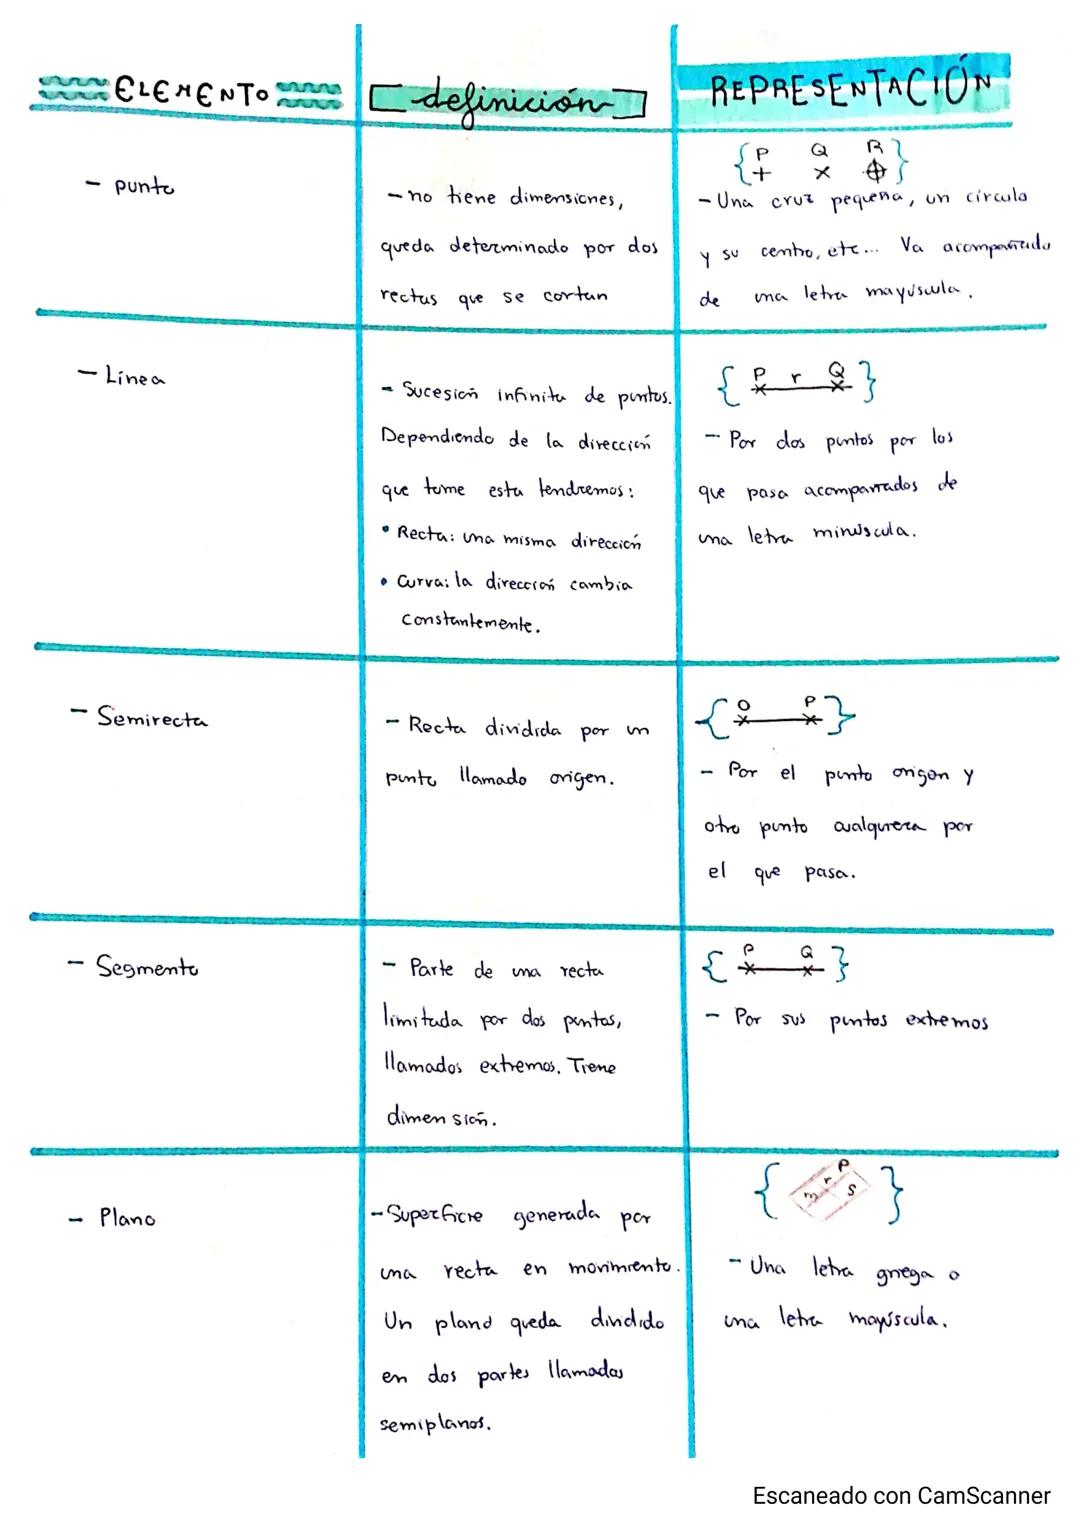 ELEMENTO
definición
REPRESENTACIÓN
- punto
- no tiene dimensiones,
queda determinado por dos
rectas que se cortan
P Q R
- Una cruz pequeña, un círculo
y su centro, etc... Va acompañado
de una letra mayúscula.
- Línea
- Sucesión infinita de puntos.
Dependiendo de la dirección
que tome esta tendremos:
• Recta: una misma dirección
• Curva: la dirección cambia
constantemente.
P r Q
- Por dos puntos por los
que pasa acompañados de
una letra minúscula.
- Semirecta
- Recta dividida por un
punto llamado origen.
O P
- Por el punto origen y
otro punto cualquiera por
el que pasa.
- Segmento
- Parte de una recta
limitada por dos puntos,
llamados extremos. Tiene
dimensión.
P Q
- Por sus puntos extremos
- Plano
- Superficie generada por
una recta en movimiento.
Un plano queda dividido
en dos partes llamadas
semiplanos.
m r P
s
- Una letra griega o
una letra mayúscula.
Escaneado con CamScanner